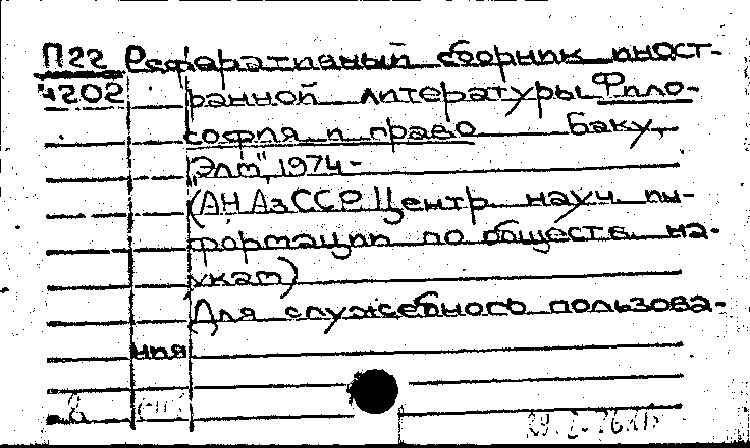 П22 Реферативный сборник иност-
4202 ранной литературы Фило-
софия и право Баку,
"Элм", 1974-
(АН АзССР Центр науч. ин-
формации по обществ. на-
укам)
Для служебного пользова-
ния